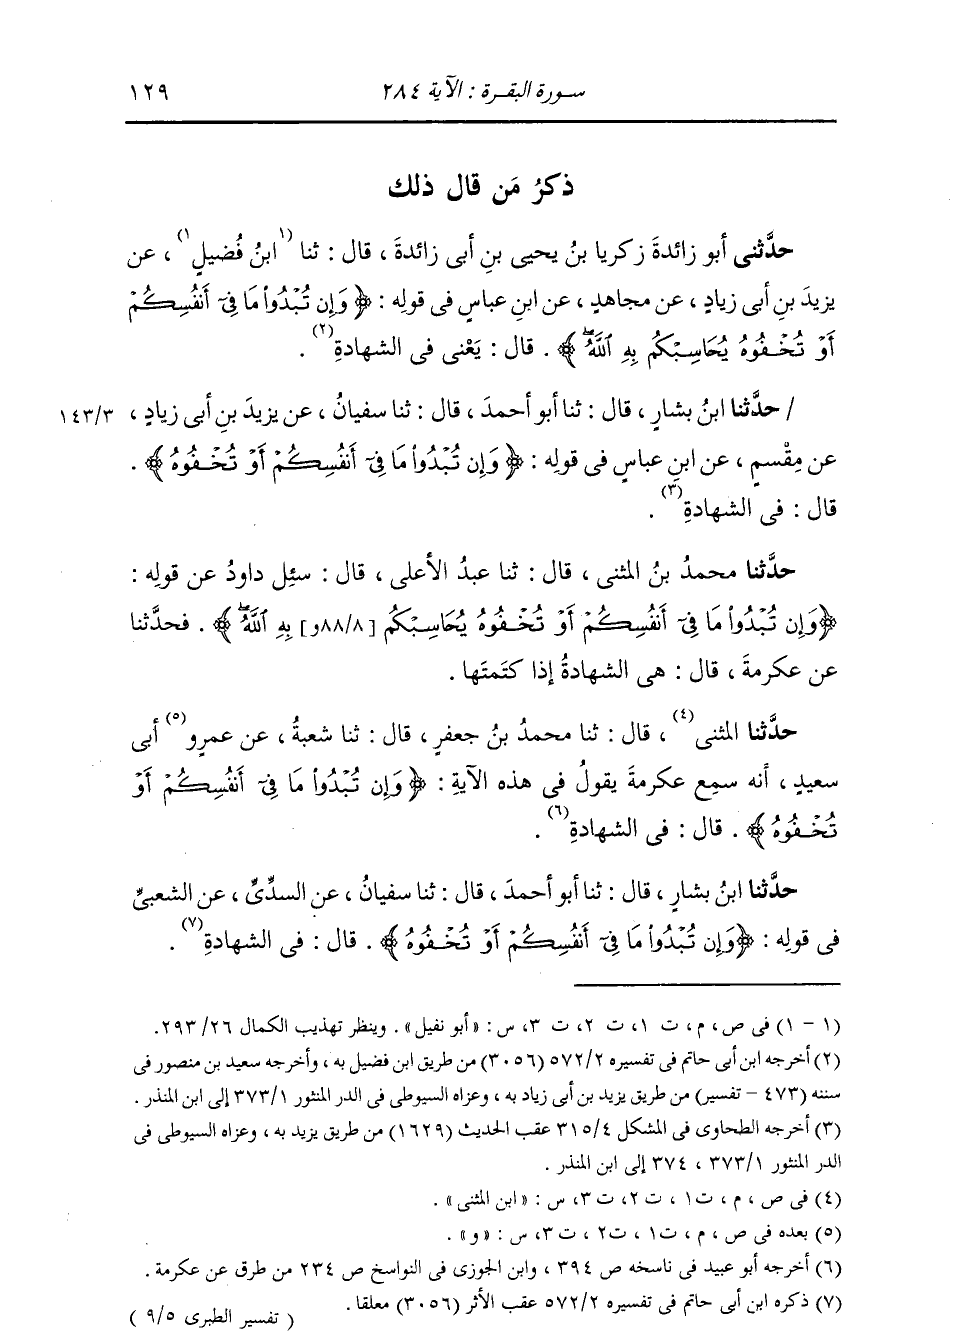 سورة البقرة : الآية ٢٨٤ ١٢٩
ذكرُ مَن قال ذلك
حدَّثنى أبو زائدةَ زكريا بنُ يحيى بنِ أبى زائدةَ ، قال : ثنا (١ابنُ فُضيلٍ١) ، عن
يزيدَ بنِ أبى زيادٍ ، عن مجاهدٍ ، عن ابنِ عباسٍ فى قولِه : ﴿ وَإِن تُبْدُوا۟ مَا فِىٓ أَنفُسِكُمْ
أَوْ تُخْفُوهُ يُحَاسِبْكُم بِهِ ٱللَّهُۖ ﴾ . قال : يَعْنى فى الشهادةِ(٢) .
/ حدَّثنا ابنُ بشارٍ ، قال : ثنا أبو أحمدَ ، قال : ثنا سفيانُ ، عن يزيدَ بنِ أبى زيادٍ ، ١٤٣/٣
عن مِقْسمٍ ، عن ابنِ عباسٍ فى قولِه : ﴿ وَإِن تُبْدُوا۟ مَا فِىٓ أَنفُسِكُمْ أَوْ تُخْفُوهُ ﴾ .
قال : فى الشهادةِ(٣) .
حدَّثنا محمدُ بنُ المثنى ، قال : ثنا عبدُ الأعلى ، قال : سئِل داودُ عن قولِه :
﴿ وَإِن تُبْدُوا۟ مَا فِىٓ أَنفُسِكُمْ أَوْ تُخْفُوهُ يُحَاسِبْكُم [٨٨/٨و] بِهِ ٱللَّهُۖ ﴾ . فحدَّثنا
عن عكرمةَ ، قال : هى الشهادةُ إذا كتَمتَها .
حدَّثنا المثنى(٤) ، قال : ثنا محمدُ بنُ جعفرٍ ، قال : ثنا شعبةُ ، عن عمرٍو(٥) أبى
سعيدٍ ، أنه سمِع عكرمةَ يقولُ فى هذه الآيةِ : ﴿ وَإِن تُبْدُوا۟ مَا فِىٓ أَنفُسِكُمْ أَوْ
تُخْفُوهُ ﴾ . قال : فى الشهادةِ(٦) .
حدَّثنا ابنُ بشارٍ ، قال : ثنا أبو أحمدَ ، قال : ثنا سفيانُ ، عن السدِّىِّ ، عن الشعبىِّ
فى قولِه : ﴿ وَإِن تُبْدُوا۟ مَا فِىٓ أَنفُسِكُمْ أَوْ تُخْفُوهُ ﴾ . قال : فى الشهادةِ(٧) .
(١ - ١) فى ص ، م ، ت ١، ت ٢، ت ٣، س : «أبو نفيل» . وينظر تهذيب الكمال ٢٦/ ٢٩٣.
(٢) أخرجه ابن أبى حاتم فى تفسيره ٥٧٢/٢ (٣٠٥٦) من طريق ابن فضيل به ، وأخرجه سعيد بن منصور فى
سننه (٤٧٣ - تفسير) من طريق يزيد بن أبى زياد به ، وعزاه السيوطى فى الدر المنثور ٣٧٣/١ إلى ابن المنذر .
(٣) أخرجه الطحاوى فى المشكل ٣١٥/٤ عقب الحديث (١٦٢٩) من طريق يزيد به ، وعزاه السيوطى فى
الدر المنثور ٣٧٣/١ ، ٣٧٤ إلى ابن المنذر .
(٤) فى ص ، م ، ت١ ، ت٢، ت٣، س : «ابن المثنى» .
(٥) بعده فى ص ، م ، ت١ ، ت٢ ، ت٣، س : «و» .
(٦) أخرجه أبو عبيد فى ناسخه ص ٣٩٤ ، وابن الجوزى فى النواسخ ص ٢٣٤ من طرق عن عكرمة .
(٧) ذكره ابن أبى حاتم فى تفسيره ٥٧٢/٢ عقب الأثر (٣٠٥٦) معلقا .
( تفسير الطبرى ٩/٥ )